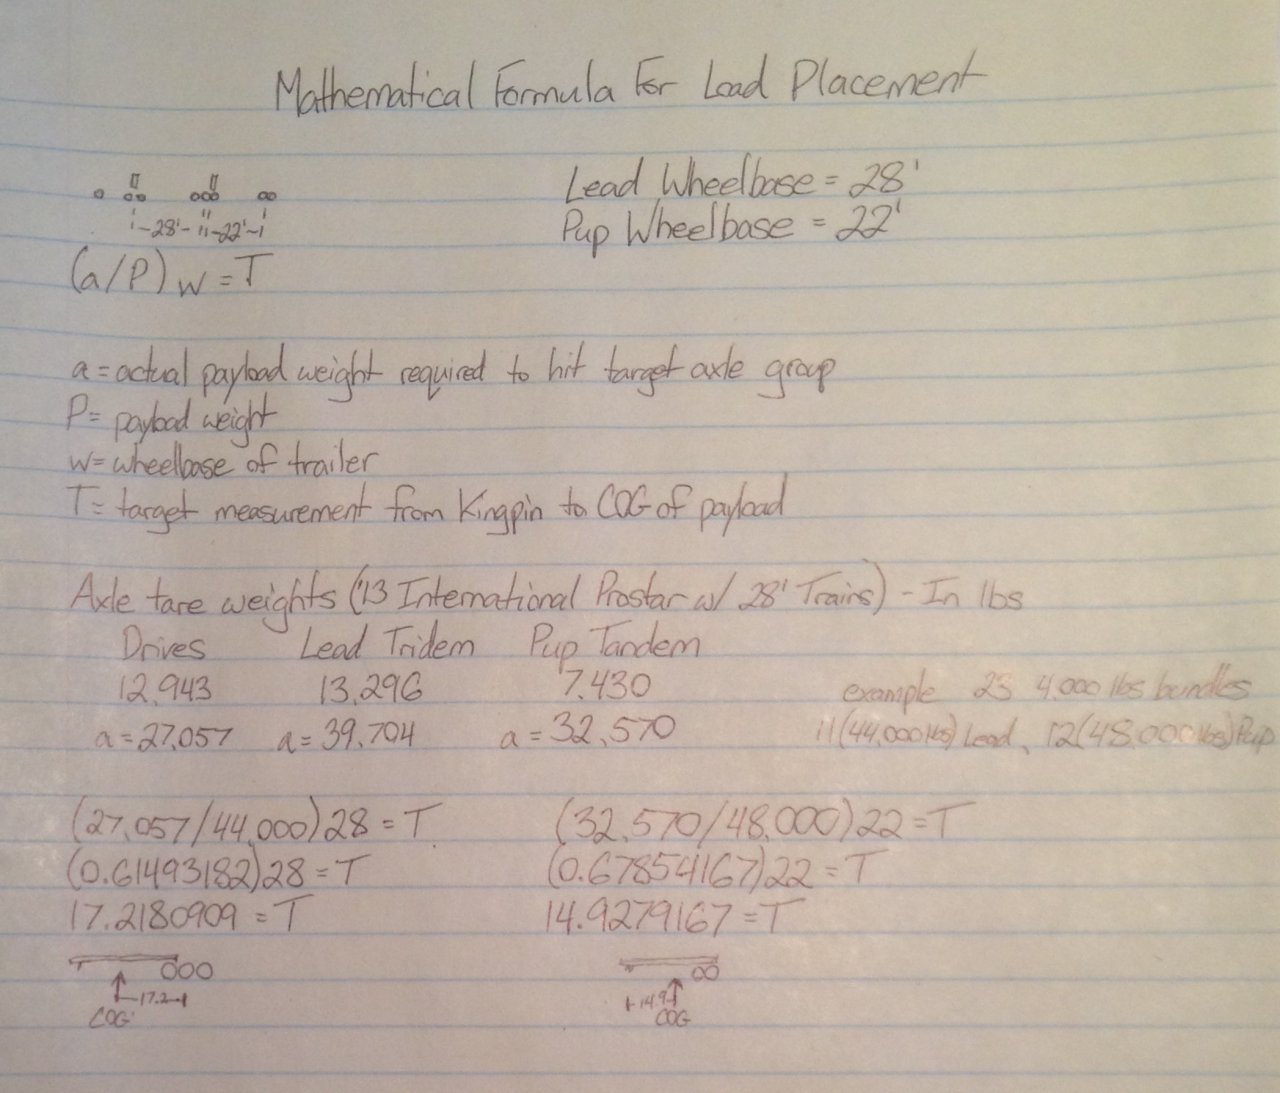 Mathematical Formula For Load Placement
Lead Wheelbase = 28'
Pup Wheelbase = 22'
28' 22'
(a/P) w = T
a = actual payload weight required to hit target axle group
P = payload weight
w = wheelbase of trailer
T = target measurement from Kingpin to COG of payload
Axle tare weights ('13 International Prostar w/ 28' Trains) - In lbs
Drives Lead Tridem Pup Tandem
12,943 13,296 7,430
example 23 4,000 lbs bundles
a = 27,057 a = 39,704 a = 32,570
11(44,000 lbs) Lead, 12(48,000 lbs) Pup
(27,057/44,000)28 = T (32,570/48,000)22 = T
(0.61493182)28 = T (0.67854167)22 = T
17.2180909 = T 14.9279167 = T
17.2 14.9
COG COG